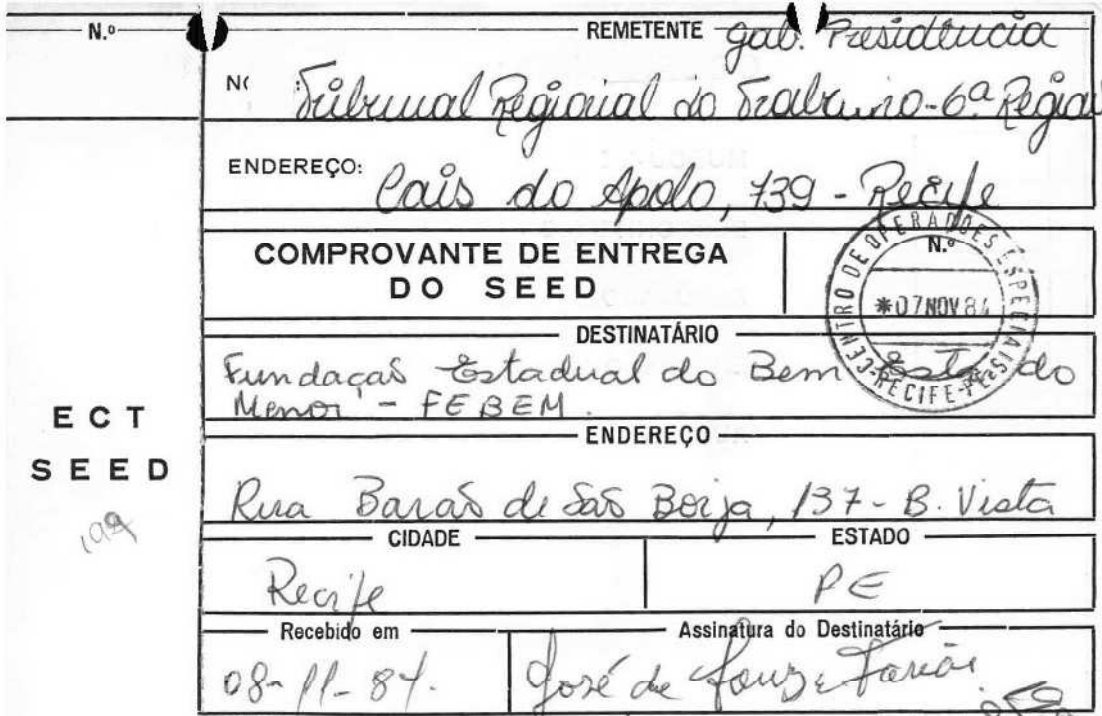 N.º
REMETENTE gab. Presidência
Tribunal Regional do Trabalho-6ª Região
ENDEREÇO: Cais do Apolo, 739 - Recife
COMPROVANTE DE ENTREGA
DO SEED
N.º
CENTRO DE OPERAÇÕES ESPECIAIS
*07NOV84
RECIFE-PE
DESTINATÁRIO
Fundação Estadual do Bem Estar do
Menor - FEBEM.
ECT
SEED
199
ENDEREÇO
Rua Barão de São Borja, 137 - B. Vista
CIDADE
ESTADO
Recife
PE
Recebido em
Assinatura do Destinatário
08-11-84.
José de Souza Farias